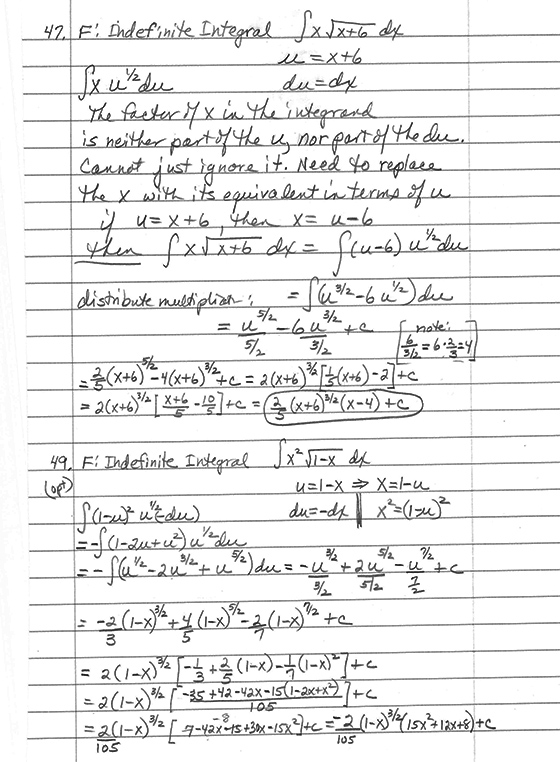 47. F: Indefinite Integral ∫x√(x+6) dx
u = x+6
∫x u^(1/2) du    du = dx
The factor of x in the integrand
is neither part of the u, nor part of the du.
Cannot just ignore it. Need to replace
the x with its equivalent in terms of u
if u = x+6, then x = u-6
then ∫x√(x+6) dx = ∫(u-6) u^(1/2) du
distribute multiplication: = ∫(u^(3/2) - 6u^(1/2)) du
= u^(5/2)/(5/2) - 6u^(3/2)/(3/2) + c [note: 6/(3/2) = 6·2/3 = 4]
= 2/5 (x+6)^(5/2) - 4(x+6)^(3/2) + c = 2(x+6)^(3/2) [1/5 (x+6) - 2] + c
= 2(x+6)^(3/2) [(x+6)/5 - 10/5] + c = 2/5 (x+6)^(3/2) (x-4) + c
49. F: Indefinite Integral ∫x² √(1-x) dx
(opt) u = 1-x ⇒ x = 1-u
∫(1-u)² u^(1/2) (-du)    du = -dx || x² = (1-u)²
= -∫(1-2u+u²) u^(1/2) du
= -∫(u^(1/2) - 2u^(3/2) + u^(5/2)) du = -u^(3/2)/(3/2) + 2u^(5/2)/(5/2) - u^(7/2)/(7/2) + c
= -2/3 (1-x)^(3/2) + 4/5 (1-x)^(5/2) - 2/7 (1-x)^(7/2) + c
= 2(1-x)^(3/2) [-1/3 + 2/5 (1-x) - 1/7 (1-x)²] + c
= 2(1-x)^(3/2) [(-35+42-42x-15(1-2x+x²))/105] + c
= 2/105 (1-x)^(3/2) [7-42x-15+30x-15x²] + c = -2/105 (1-x)^(3/2) (15x²+12x+8) + c
-8